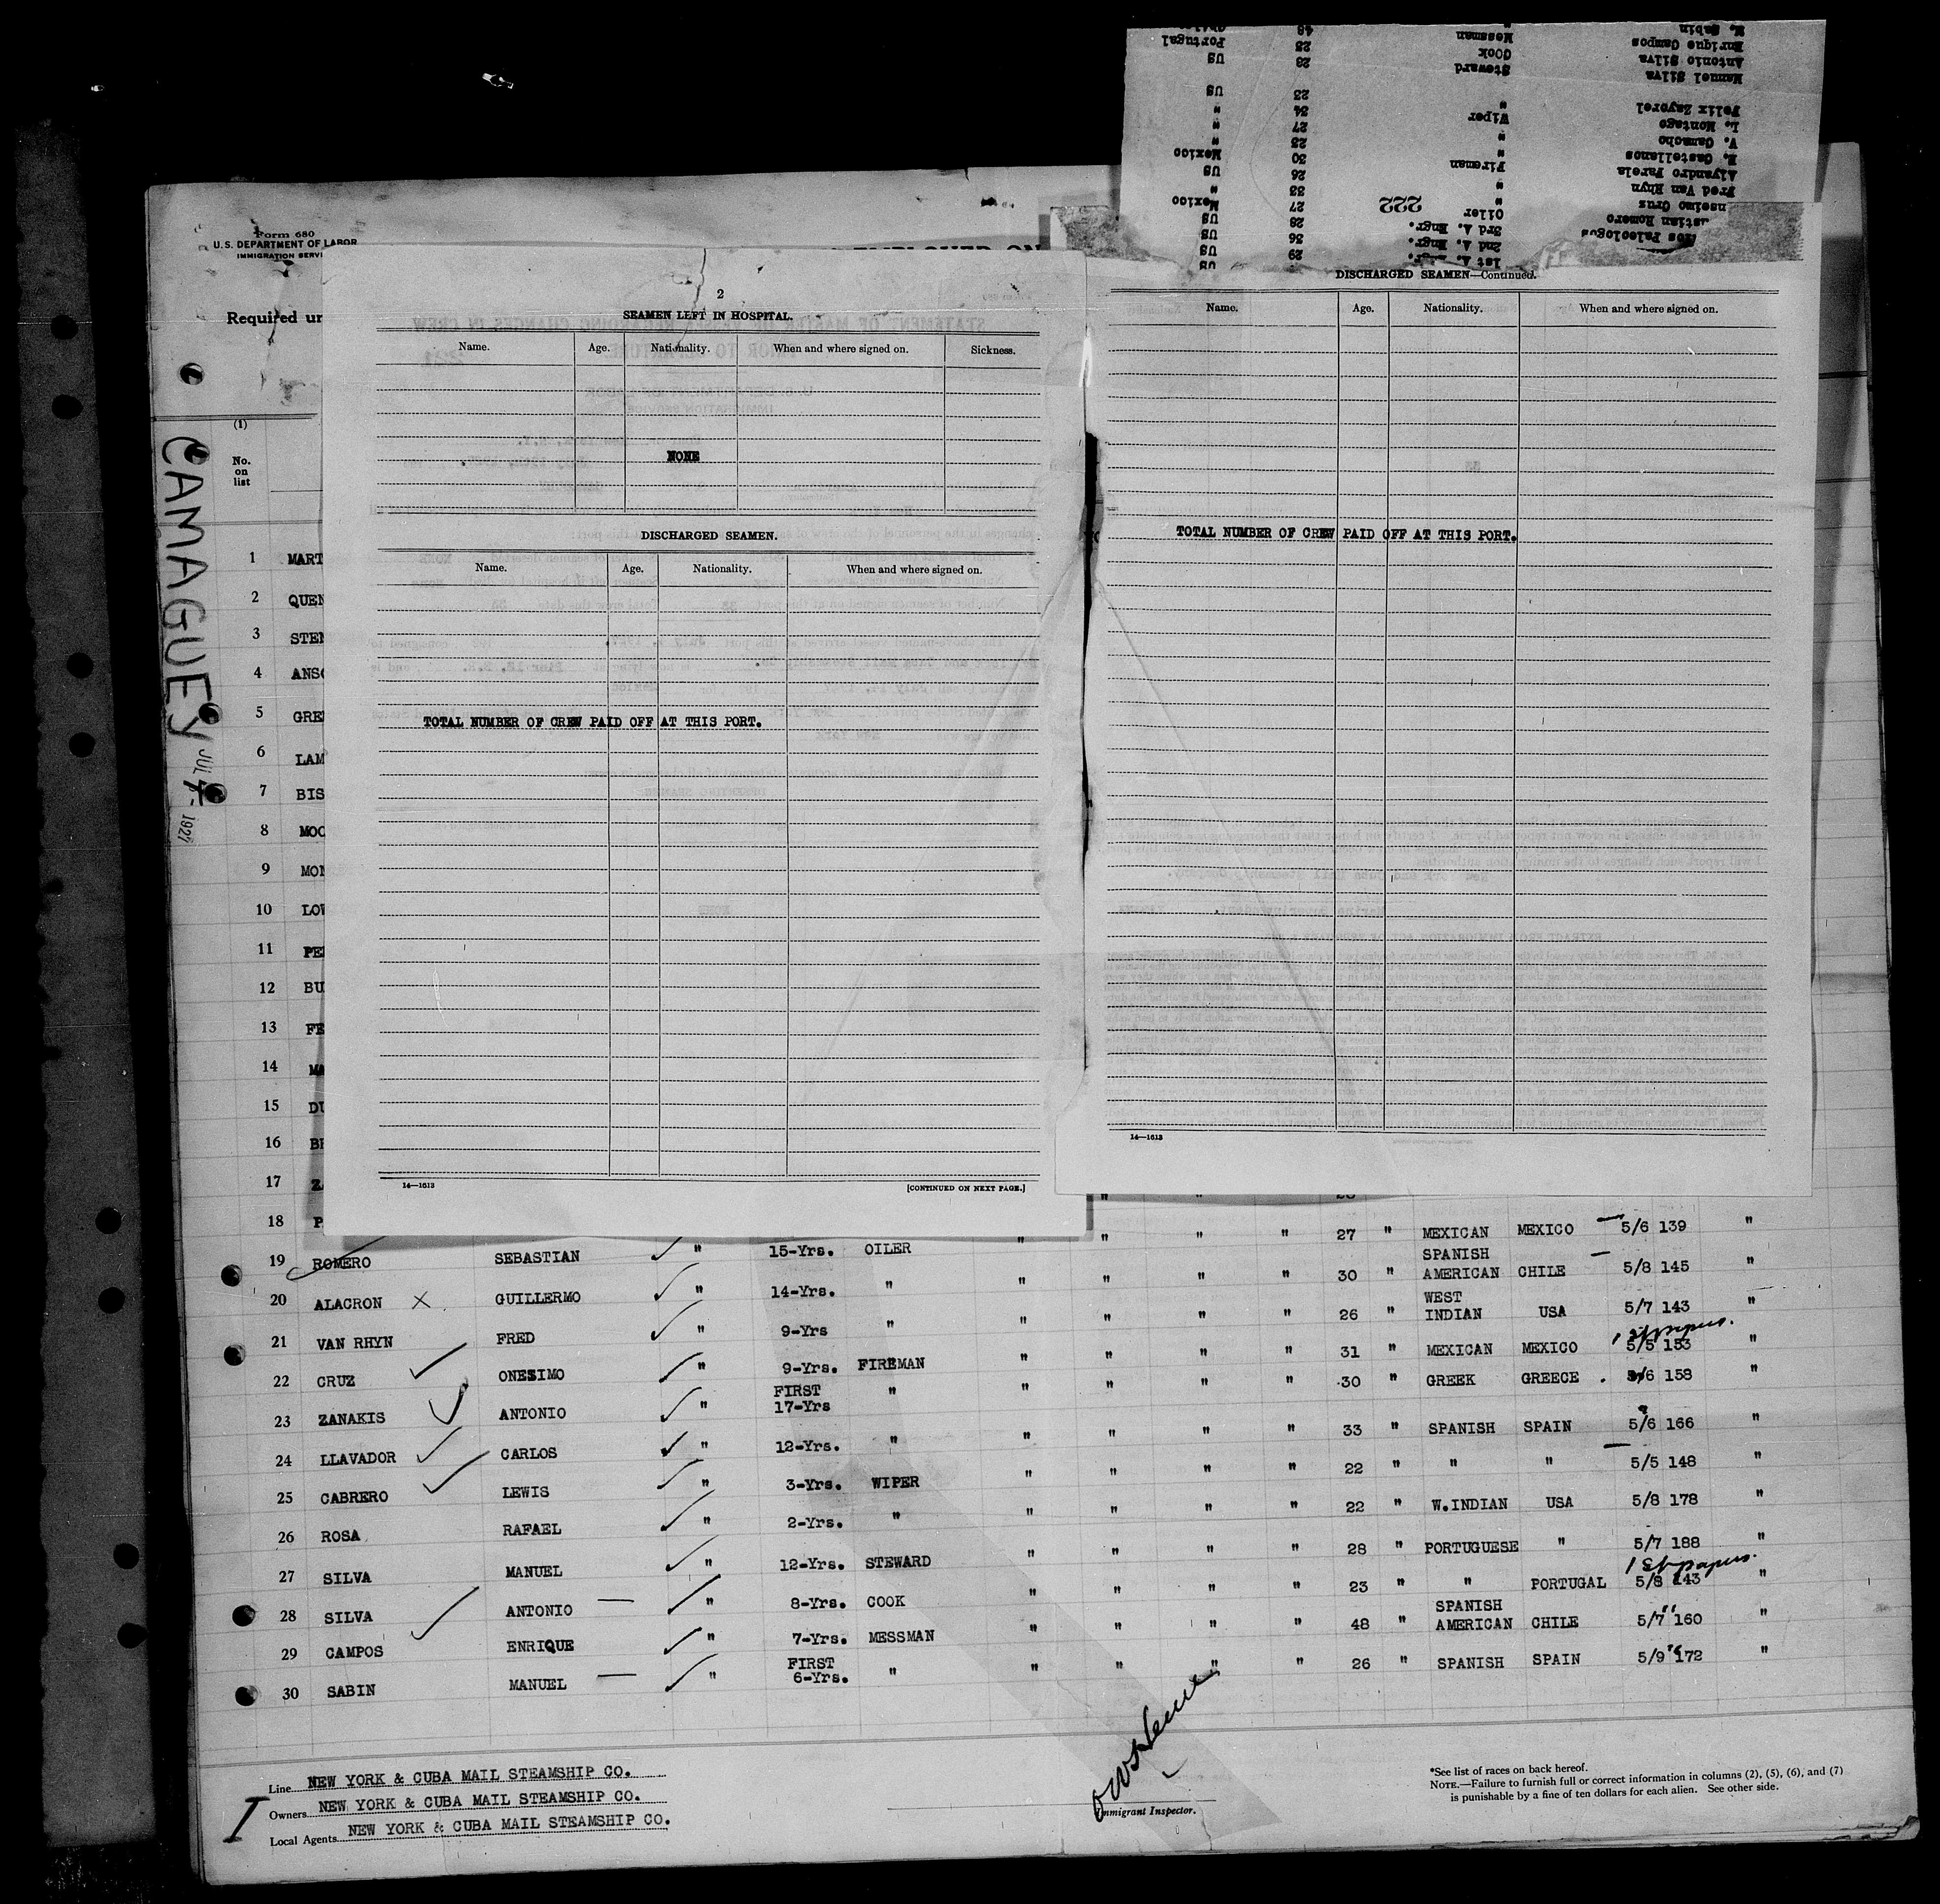 Form 680
U.S. DEPARTMENT OF LABOR
IMMIGRATION SERVI
Required un
(1)
No.
on
list
CAMAGUEY
JUL 7- 1927
1 MART
2 QUEN
3 STEN
4 ANSO
5 GRE
6 LAM
7 BIS
8 MOO
9 MON
10 LOW
11 PE
12 BU
13 FE
14 MA
15 DU
16
17 Z
18 P
2
SEAMEN LEFT IN HOSPITAL.
Name. Age. Nationality. When and where signed on. Sickness.
NONE
DISCHARGED SEAMEN.
Name. Age. Nationality. When and where signed on.
TOTAL NUMBER OF CREW PAID OFF AT THIS PORT.
14—1613 [CONTINUED ON NEXT PAGE.]
1st A. Engr. 29 US
Paleologus 2nd A. Engr. 36 US
stian Romero 3rd A. Engr. 28 US
nseimo Crus Oiler 222 27 Mexico
Fred Van Rhyn " 33 "
Alyandro Parela " 26 US
E. Castellanos Fireman 30 Mexico
V. Camacho " 23 "
L. Montago " 27 "
Felix Zayorel Wiper 34 "
" 23 US
Manuel Silva Steward 28 US
Antonio Silva Cook 23 Portugal
Enrique Campos Messman 48
M. Sabin "
DISCHARGED SEAMEN—Continued.
Name. Age. Nationality. When and where signed on.
TOTAL NUMBER OF CREW PAID OFF AT THIS PORT.
14—1613
19 ROMERO SEBASTIAN " 15-Yrs. OILER " " " " 27 " MEXICAN MEXICO 5/6 139 "
20 ALACRON X GUILLERMO " 14-Yrs. " " " " " 30 " SPANISH AMERICAN CHILE 5/8 145 "
21 VAN RHYN FRED " 9-Yrs " " " " " 26 " WEST INDIAN USA 5/7 143 "
1st papers.
22 CRUZ ONESIMO " 9-Yrs. FIREMAN " " " " 31 " MEXICAN MEXICO 5/5 153 "
23 ZANAKIS ANTONIO " FIRST 17-Yrs " " " " " 30 " GREEK GREECE 5/6 158 "
24 LLAVADOR CARLOS " 12-Yrs. " " " " " 33 " SPANISH SPAIN 5/6 166 "
25 CABRERO LEWIS " 3-Yrs. WIPER " " " " 22 " " " 5/5 148 "
26 ROSA RAFAEL " 2-Yrs. " " " " " 22 " W.INDIAN USA 5/8 178 "
27 SILVA MANUEL " 12-Yrs. STEWARD " " " " 28 " PORTUGUESE " 5/7 188 "
1st papers.
28 SILVA ANTONIO " 8-Yrs. COOK " " " " 23 " " PORTUGAL 5/8 143 "
29 CAMPOS ENRIQUE " 7-Yrs. MESSMAN " " " " 48 " SPANISH AMERICAN CHILE 5/7 160 "
30 SABIN MANUEL " FIRST 6-Yrs. " " " " " 26 " SPANISH SPAIN 5/9 172 "
Line NEW YORK & CUBA MAIL STEAMSHIP CO.
Owners NEW YORK & CUBA MAIL STEAMSHIP CO.
Local Agents NEW YORK & CUBA MAIL STEAMSHIP CO.
I
Immigrant Inspector.
*See list of races on back hereof.
NOTE.—Failure to furnish full or correct information in columns (2), (5), (6), and (7)
is punishable by a fine of ten dollars for each alien. See other side.